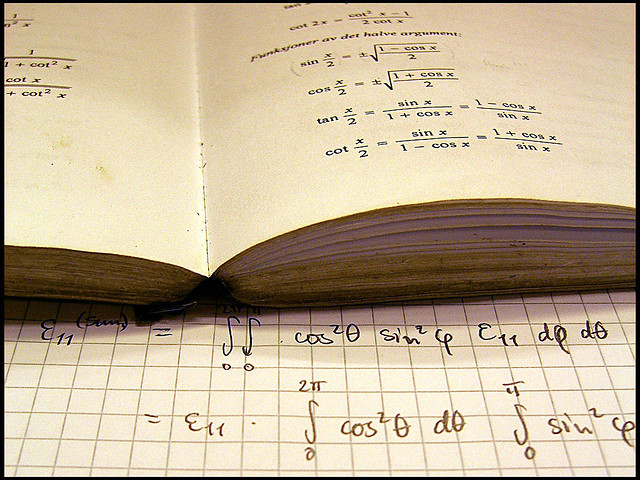 1 + cot² x
cot x
+ cot² x
cot 2x = cot² x − 1 / 2 cot x
Funksjoner av det halve argument:
sin x/2 = ±√(1 − cos x / 2)
cos x/2 = ±√(1 + cos x / 2)
tan x/2 = sin x / 1 + cos x = 1 − cos x / sin x
cot x/2 = sin x / 1 − cos x = 1 + cos x / sin x
ε₁₁ (sum) = ∫₀^2π ∫₀^π cos²θ sin²φ ε₁₁ dφ dθ
= ε₁₁ · ∫₀^2π cos²θ dθ ∫₀^π sin²φ